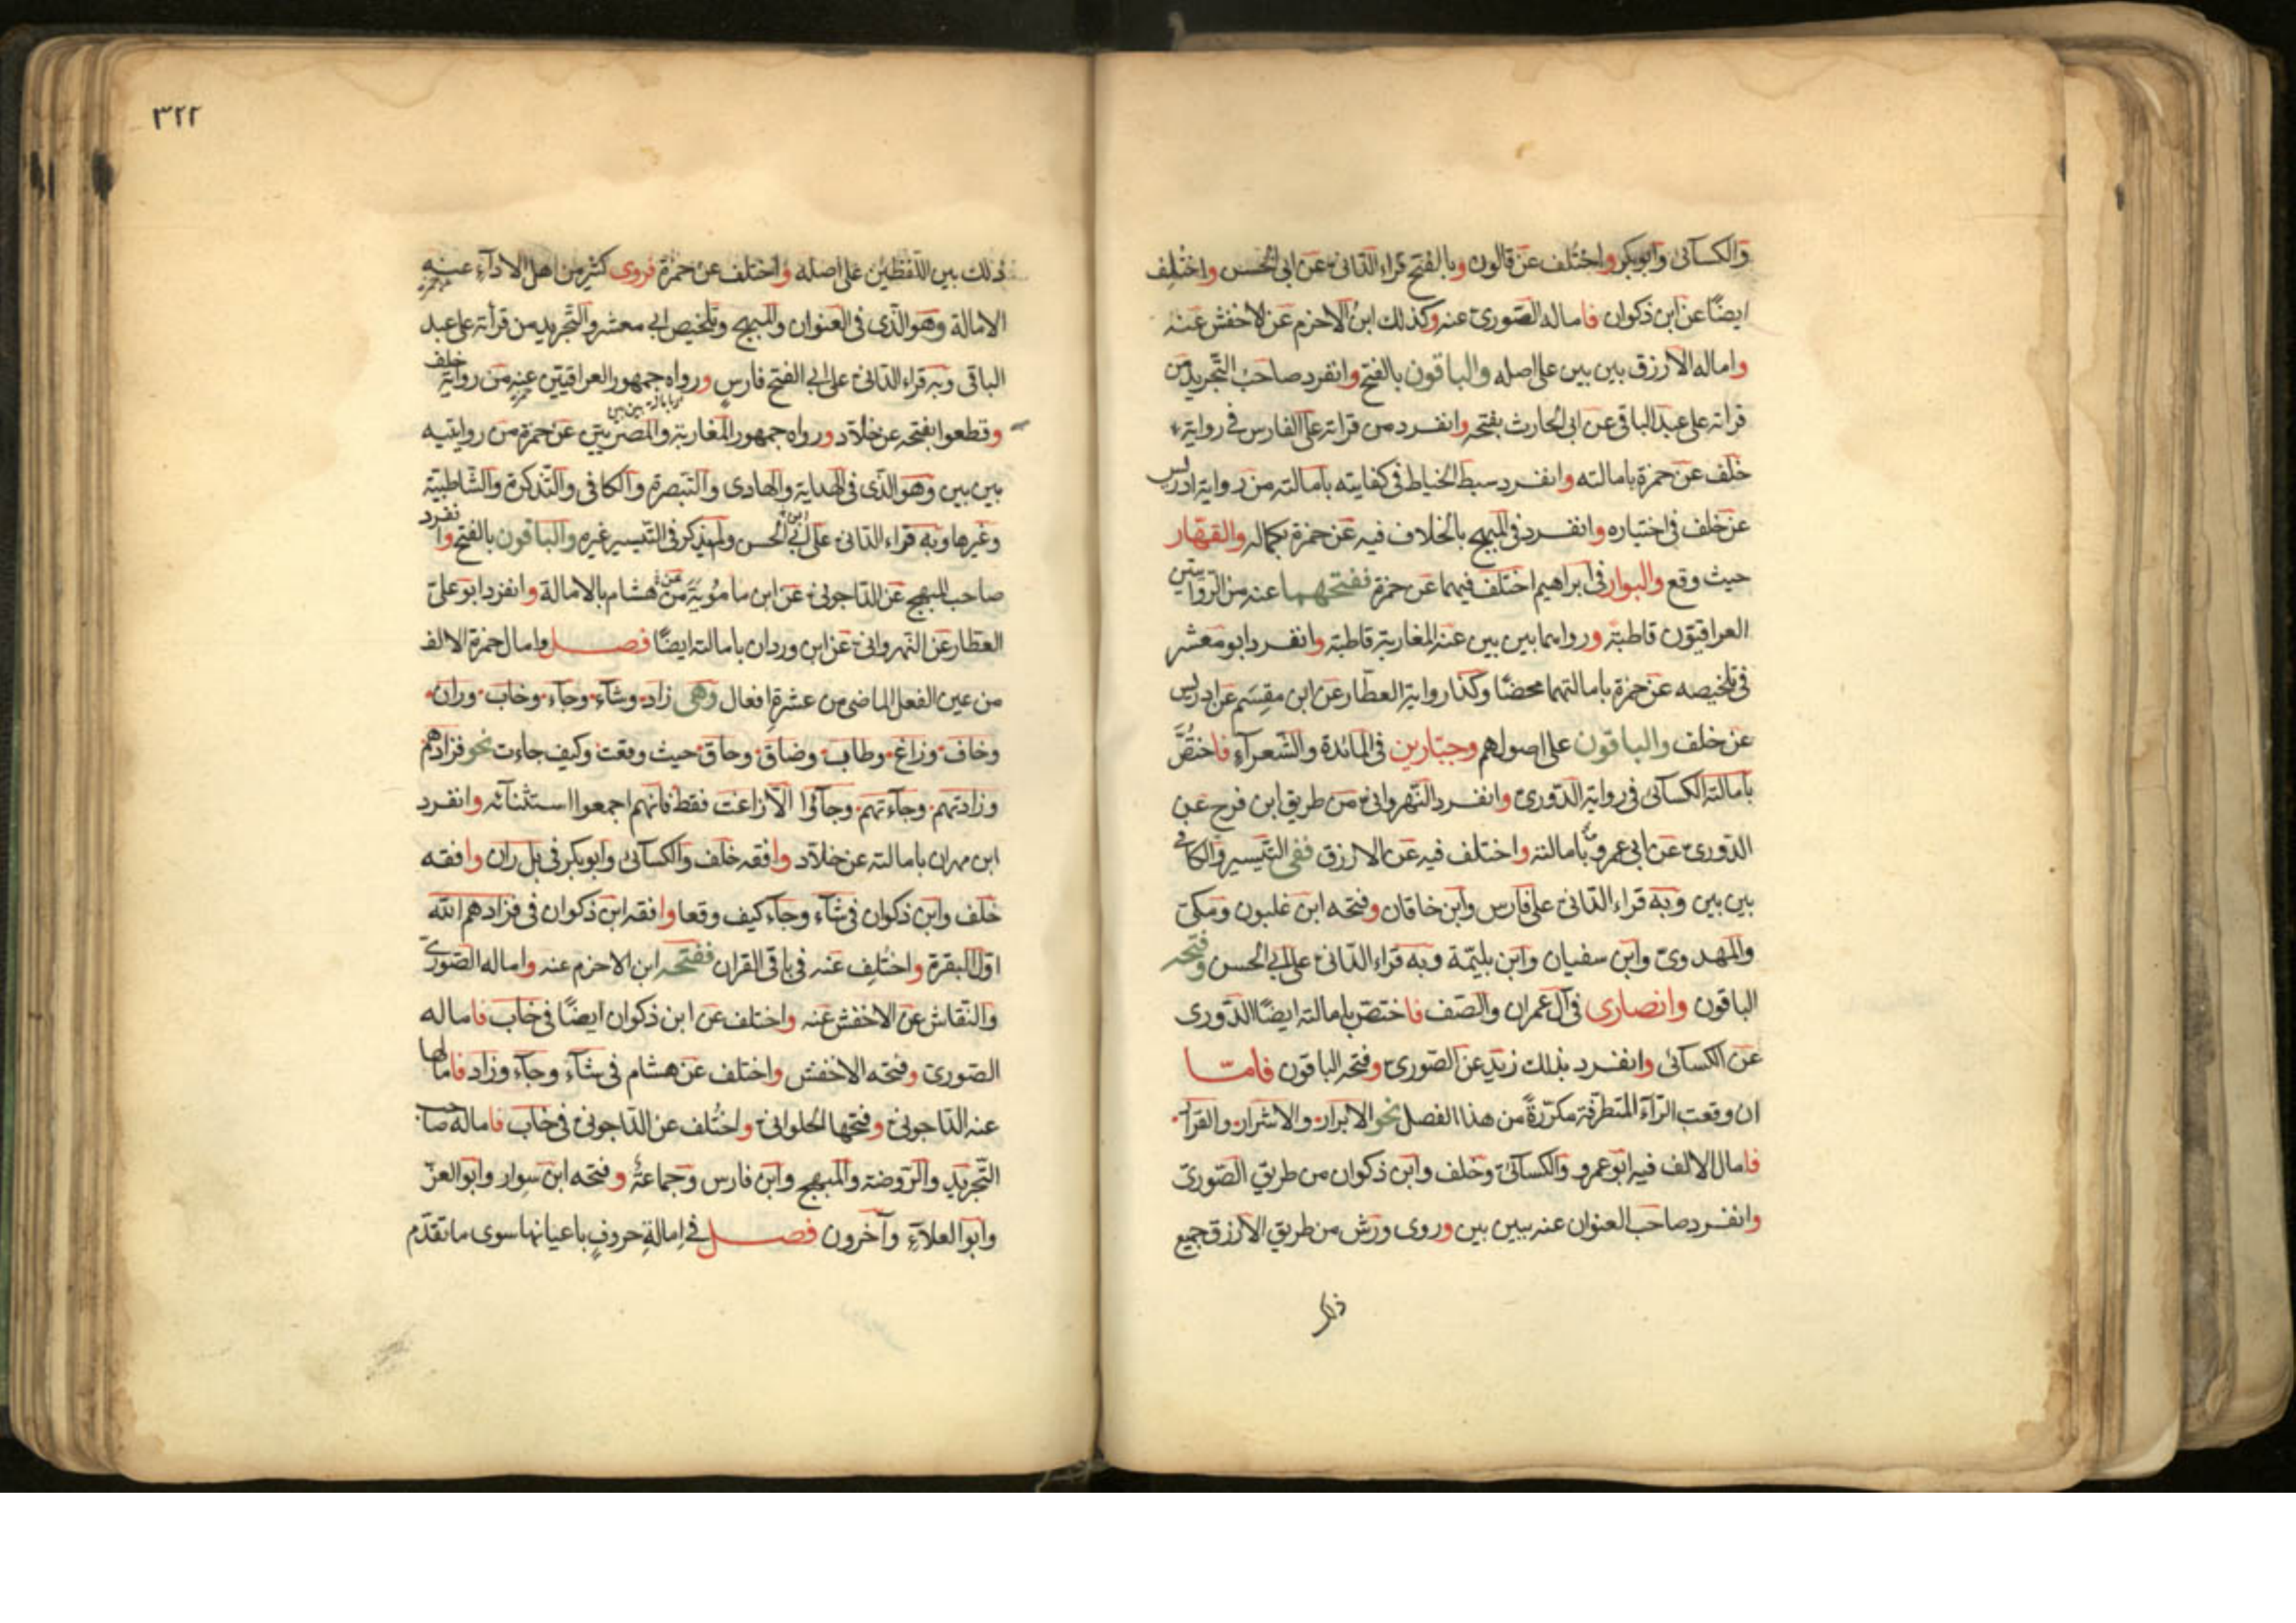 والكسآئى وابوبكر واختلف عن قالون وبالفتح قراء الدّانى عن ابى الحسن واختلف
ايضًا عن ابن ذكوان فاماله الصّورى عنه وكذلك ابن الاحزم عن الاخفش عنه
واماله الازرق بين بين على اصله والباقون بالفتح وانفرد صاحب التّجريد من
قراته على عبد الباقى عن ابى الحارث بفتحه وانفرد من قراته على الفارس فى رواية
خلف عن حمزة بامالته وانفرد سبط الخياط فى كفايته بامالته من رواية ادريس
عن خلف فى اختياره وانفرد فى المبهج بالخلاف فيه عن حمزة بكماله والقهّار
حيث وقع والبوار فى ابراهيم اختلف فيهما عن حمزة ففتحهما عنه من الرّوايتين
العراقيّون قاطبة ورواهما بين بين عنه المغاربة قاطبة وانفرد ابو معشر
فى تلخيصه عن حمزة بامالتهما محضًا وكذا رواية العطّار عن ابن مقسم عن ادريس
عن خلف والباقون على اصولهم وجبّارين فى المائدة والشّعرآء فاختصّ
بامالته الكسآئى فى رواية الدّورى وانفرد النّهروانى من طريق ابن فرح عن
الدّورى عن ابى عمرو بامالته واختلف فيه عن الازرق ففى التّيسير والكافى
بين بين وبه قراء الدّانى على فارس وابن خاقان وفتحه ابن غلبون ومكىّ
والمهدوىّ وابن سفيان وابن بليّمة وبه قراء الدّانى على ابى الحسن وفتحه
الباقون وانصارى فى آل عمران والصّف فاختصّ بامالته ايضًا الدّورى
عن الكسآئى وانفرد بذلك زيد عن الصّورى وفتحه الباقون فامّا
ان وقعت الرّآء المتطرّفة مكرّرةً من هذا الفصل نحو الابرار والاشرار والقرار
فامال الالف فيه ابو عمرو والكسآئى وخلف وابن ذكوان من طريق الصّورى
وانفرد صاحب العنوان عنه ببين بين وروى ورش من طريق الازرق جميع
ذلك
٣٢٢
ذلك بين اللّفظين على اصله واختلف عن حمزة فروى كثير من اهل الادآء عنه
الامالة وهو الّذى فى العنوان والمبهج وتلخيص ابى معشر والتّجريد من قرأته على عبد
الباقى وبه قراء الدّانى على ابى الفتح فارس ورواه جمهور العراقيّين عنه من رواية خلف
وقطعوا بفتحه عن خلّاد ورواه جمهور المغاربة والمصريّين عن حمزة من روايتيه
بين بين وهو الّذى فى الهداية والهادى والتّبصرة والكافى والتّذكرة والشّاطبيّة
وغيرها وبه قراء الدّانى على ابى الحسن ولم يذكر فى التّيسير غيره والباقون بالفتح وانفرد
صاحب المبهج عن الدّاجونى عن ابن مامويّة عن هشام بالامالة وانفرد ابو علىّ
العطّار عن النّهروانى عن ابن وردان بامالته ايضًا فصل وامال حمزة الالف
من عين الفعل الماضى من عشرة افعال وهى زاد وشآء وجآء وخاب وران
وخاف وزاغ وطاب وضاق وحاق حيث وقعت وكيف جاءت نحو فزادهم
وزادتهم وجآءتهم وجآؤا الّا زاغت فقط فانّهم اجمعوا استثنآئه وانفرد
ابن مهران بامالته عن خلّاد وافقه خلف والكسآئى وابوبكر فى بل ران وافقه
خلف وابن ذكوان فى شآء وجآء كيف وقعا وافقه ابن ذكوان فى فزادهم الله
اوّل البقرة واختلف عنه فى باقى القران ففتحه ابن الاحزم عنه واماله الصّورى
والنّقاش عن الاخفش عنه واختلف عن ابن ذكوان ايضًا فى خاب فاماله
الصّورى وفتحه الاخفش واختلف عن هشام فى شآء وجآء وزاد فامالها
عنه الدّاجونى وفتحها الحلوانى واختلف عن الدّاجونى فى خاب فاماله صاحب
التّجريد والرّوضة والمبهج وابن فارس وجماعةٌ وفتحه ابن سوار وابو العزّ
وابو العلآء وآخرون فصل فى امالة حروفٍ باعيانها سوى ما تقدّم